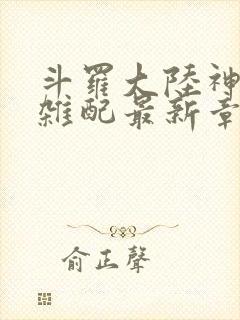 斗羅大陸神
雜配最新章
俞正聲